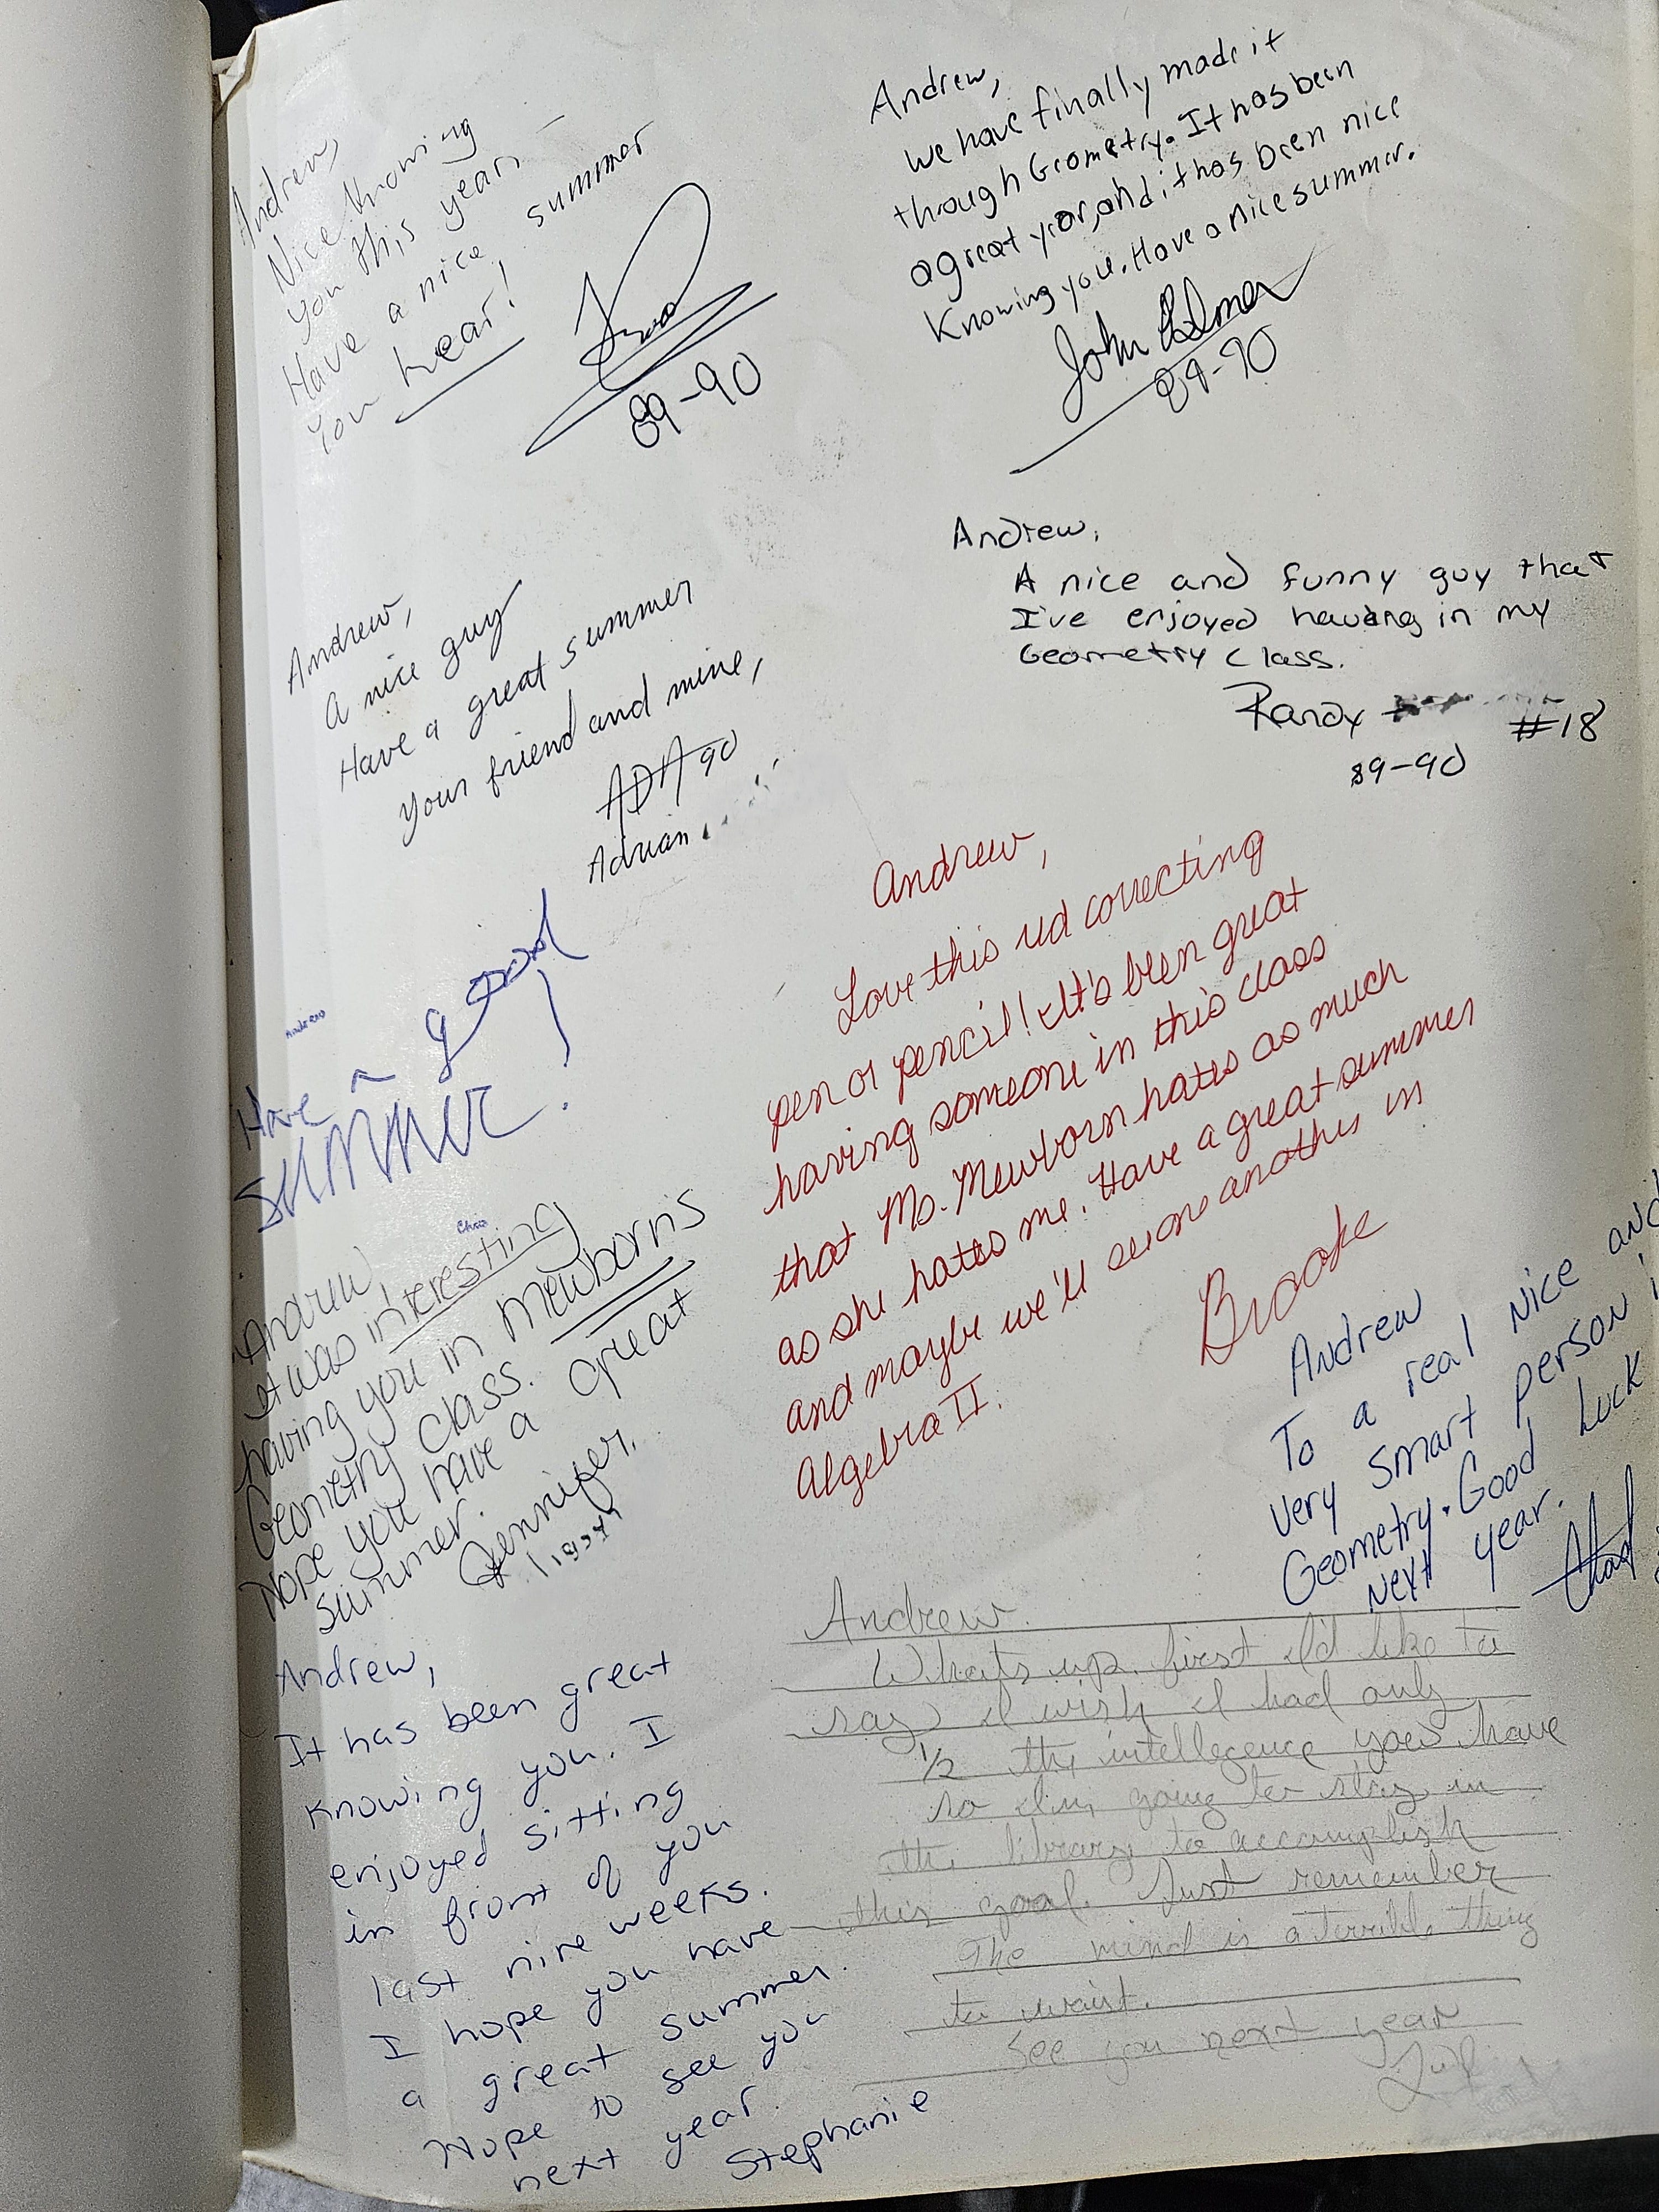 Andrew,
Nice knowing
you this year
Have a nice summer
You hear!
89-90
Andrew,
we have finally made it
through Geometry. It has been
a great year, and it has been nice
Knowing you. Have a nice summer.
John
89-90
Andrew,
A nice and funny guy that
I've enjoyed having in my
Geometry Class.
Randy #18
89-90
Andrew,
A nice guy
Have a great summer
Your friend and mine,
ADA 90
Adrian
Andrew,
Love this red correcting
pen or pencil! It's been great
having someone in this class
that Ms. Mewborn hates as much
as she hates me. Have a great summer
and maybe we'll see one another in
Algebra II.
Brooke
Andrew
Have a good
summer!
Chris
Andrew,
It was interesting
having you in Mewborn's
Geometry class.
Hope you have a great
summer.
Jennifer
Andrew
To a real nice and
very smart person i
Geometry. Good Luck
Next year.
Chad
Andrew,
It has been great
knowing you. I
enjoyed sitting
in front of you
last nine weeks.
I hope you have
a great summer.
Hope to see you
next year.
Stephanie
Andrew.
Whats up, first I'd like to
say I wish I had only
1/2 the intellegence you have
so I'm going to stay in
the library to accomplish
this goal. Just remember
The mind is a terrible thing
to waist.
See you next year